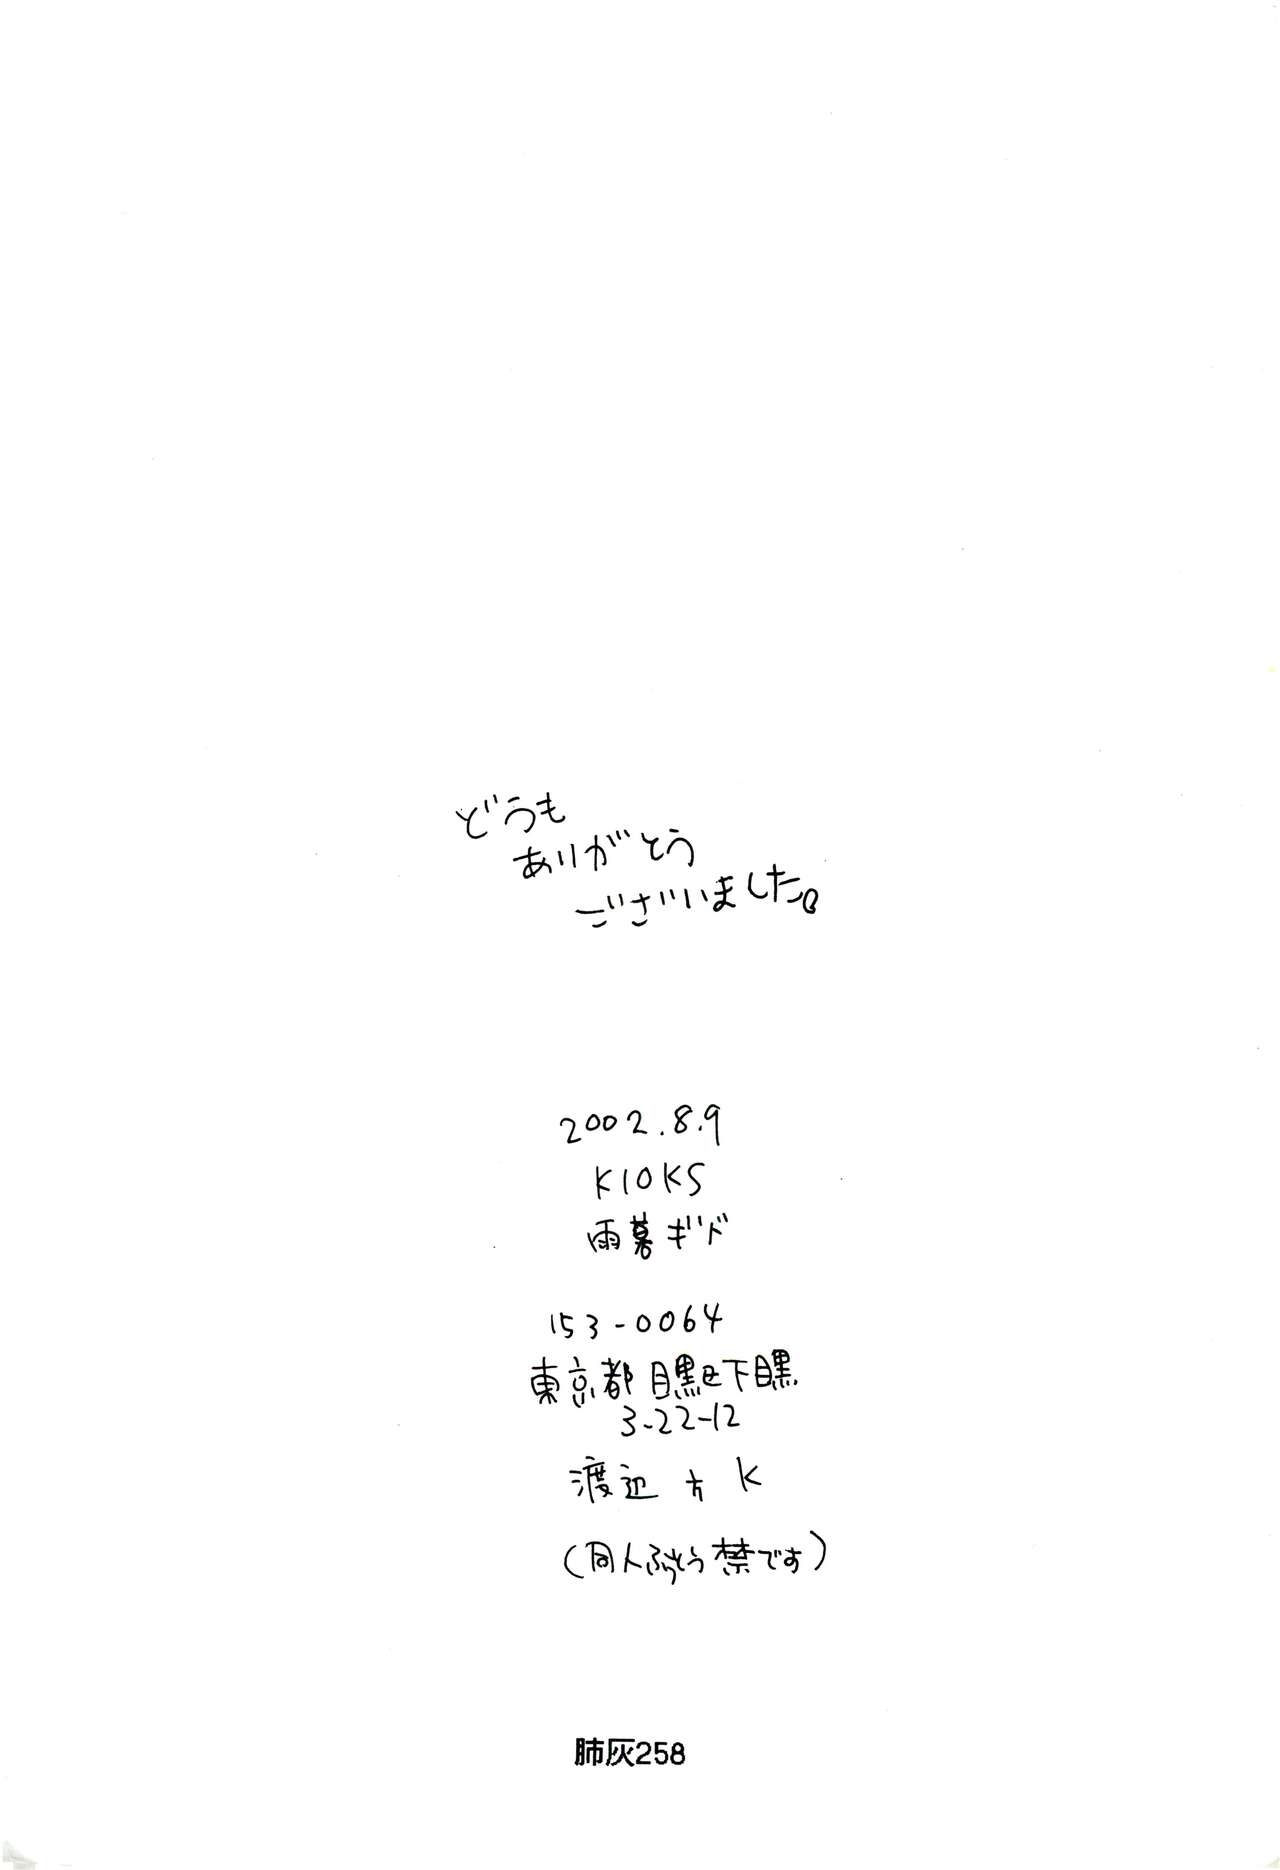 どうも
ありがとう
ございました。
2002.8.9
KIOKS
雨暮ギド
153-0064
東京都目黒区下目黒
3-22-12
渡辺方 K
(同人ふうとう禁です)
肺灰258